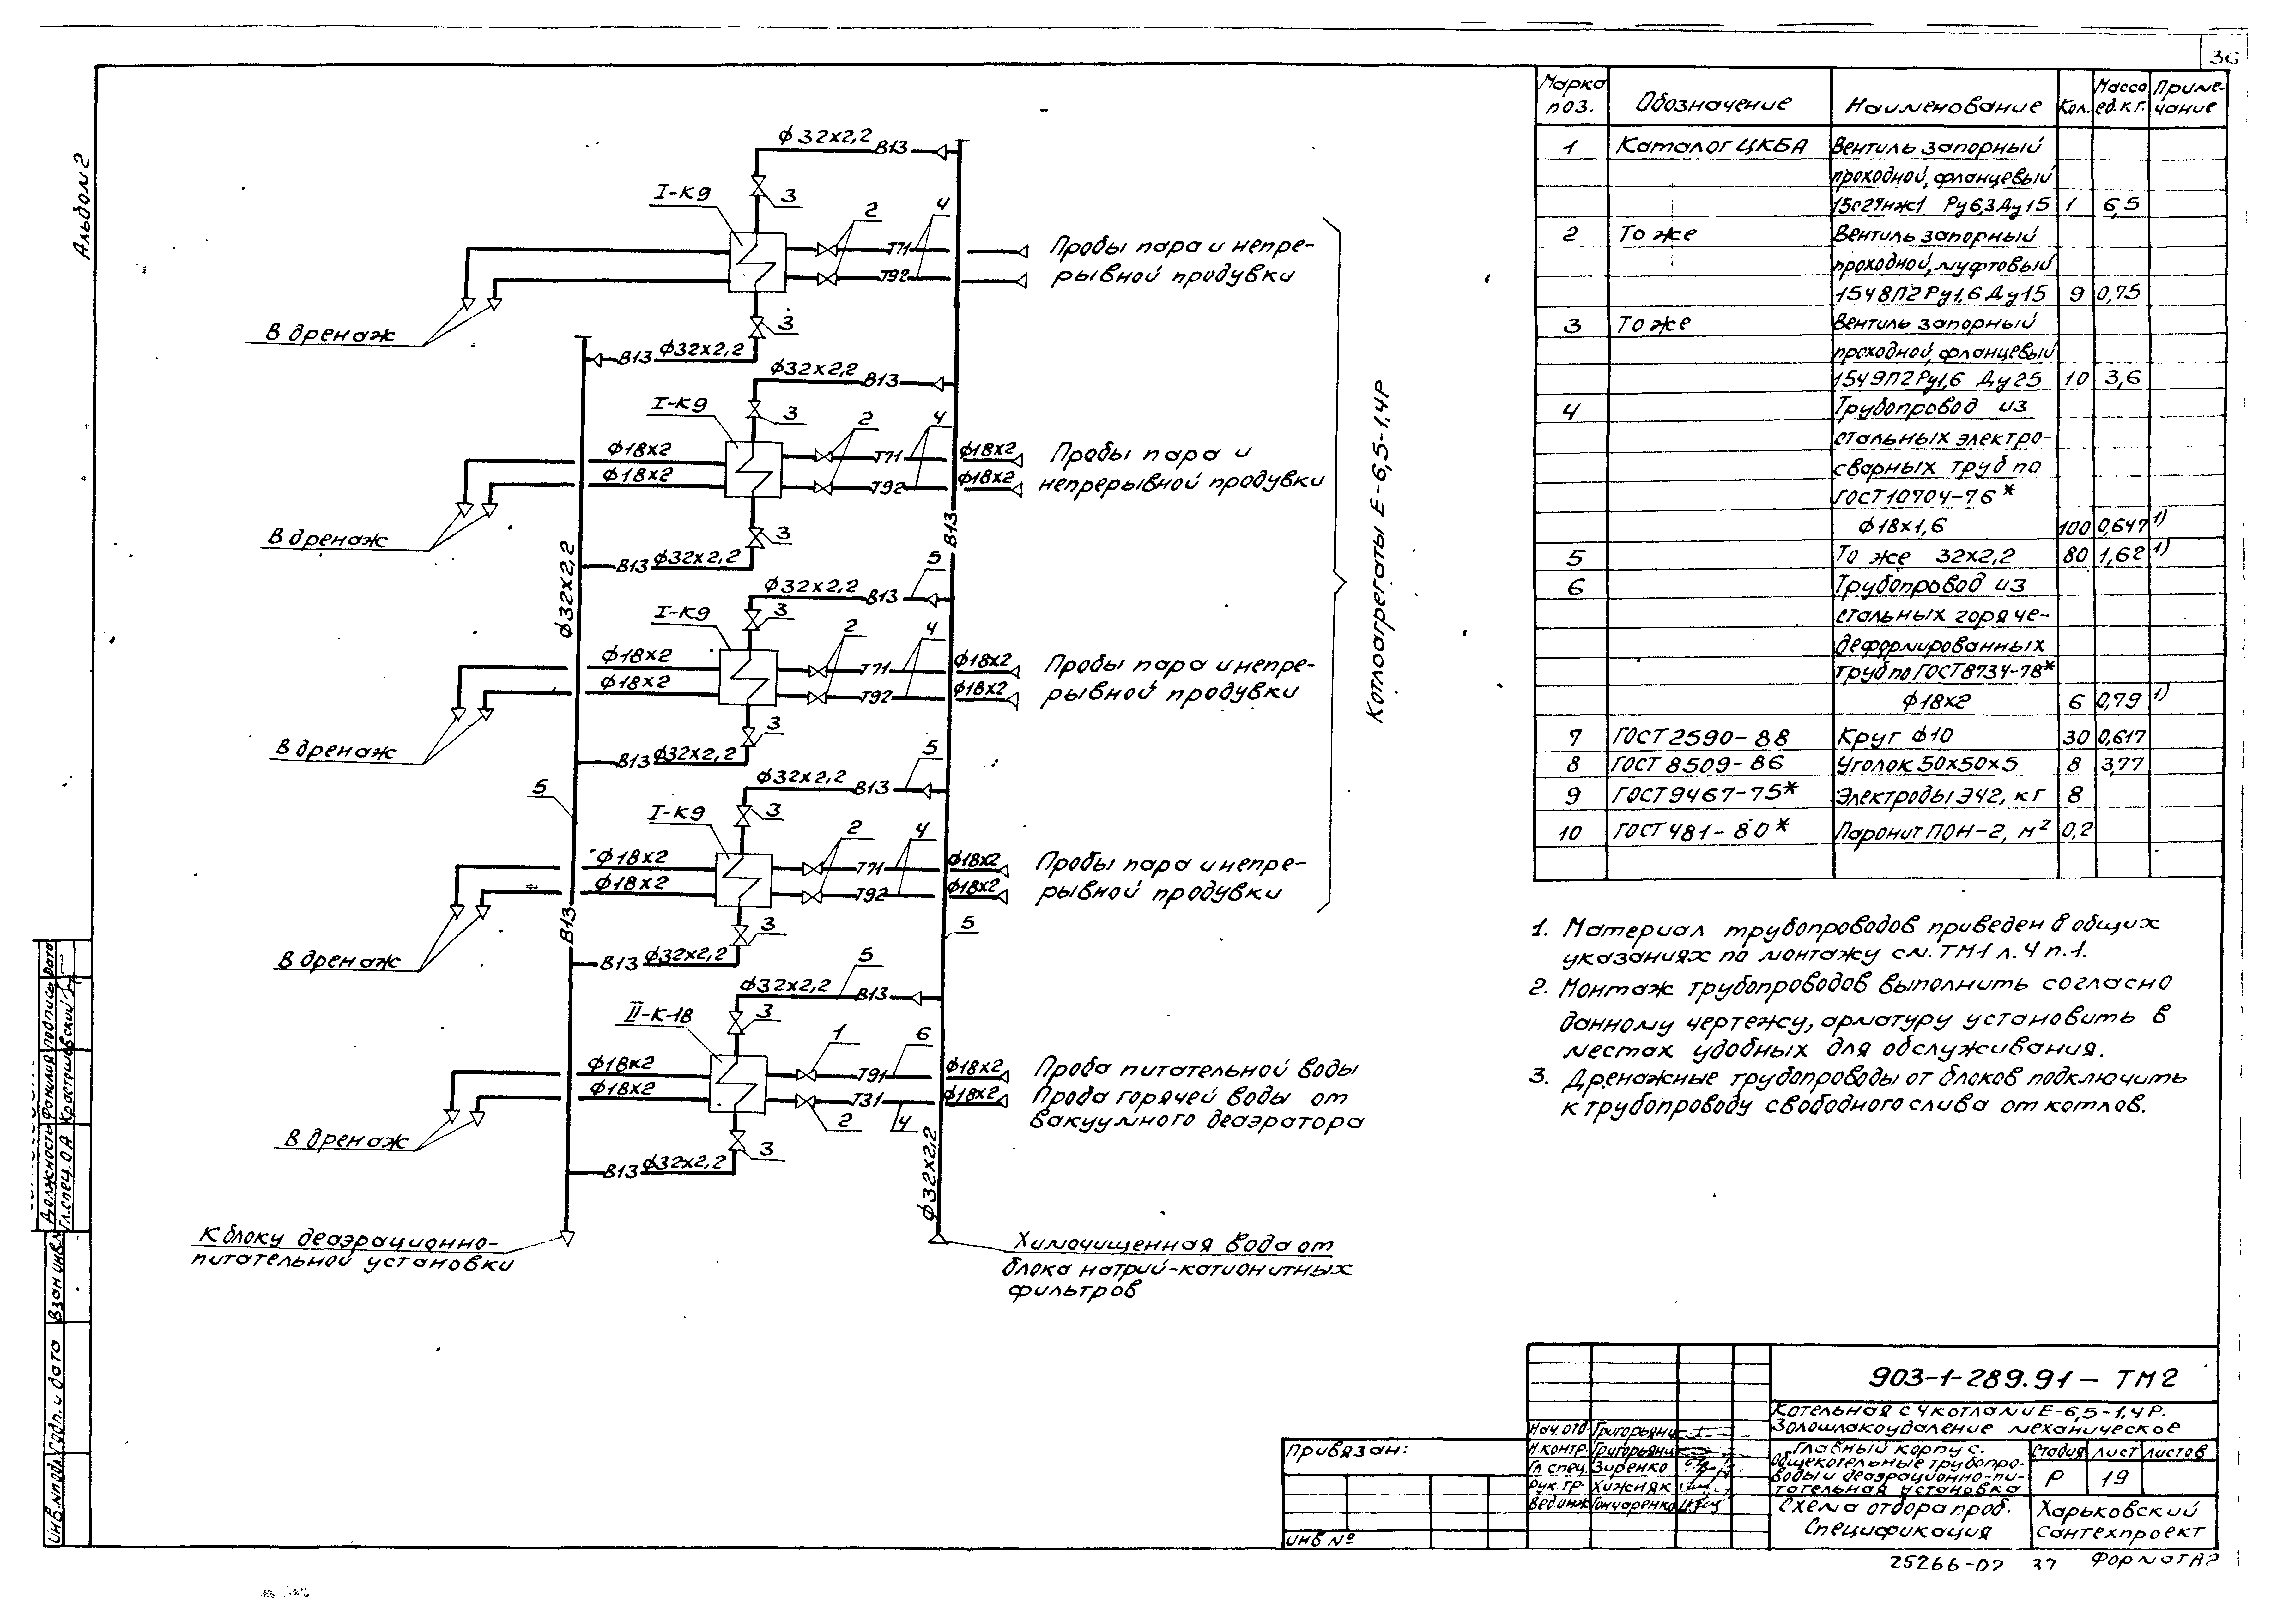 36
Альбом 2
ф32х2,2
В13
I-К9
3
2
4
Т71
Т92
Пробы пара и непре-
рывной продувки
В дренаж
3
В13 ф32х2,2
ф32х2,2
В13
I-К9
3
2
4
ф18х2
ф18х2
Т71
Т92
ф18х2
ф18х2
Пробы пара и
непрерывной продувки
В дренаж
3
В13 ф32х2,2
В13
ф32х2,2
ф32х2,2
В13
5
I-К9
3
2
4
ф18х2
ф18х2
Т71
Т92
ф18х2
ф18х2
Пробы пара и непре-
рывной продувки
В дренаж
3
В13 ф32х2,2
Котлоагрегаты Е-6,5-1,4Р
5
ф32х2,2
В13
5
I-К9
3
2
4
ф18х2
ф18х2
Т71
Т92
ф18х2
ф18х2
Пробы пара и непре-
рывной продувки
В дренаж
3
В13
5
В13 ф32х2,2
ф32х2,2
В13
5
II-К-18
3
1
6
ф18х2
ф18х2
Т91
Т31
ф18х2
ф18х2
2
4
Проба питательной воды
Прода горячей воды от
вакуумного деаэратора
В дренаж
3
В13 ф32х2,2
ф32х2,2
К блоку деаэрационно-
питательной установки
Химочищенная вода от
блока натрий-катионитных
фильтров
Марка поз.
Обозначение
Наименование
Кол.
Масса ед. кг.
Приме-чание
1 Каталог ЦКБА Вентиль запорный
проходной, фланцевый
15с27нж1 Ру6,3 Ду15 1 6,5
2 То же Вентиль запорный
проходной, муфтовый
15ч8П2 Ру1,6 Ду15 9 0,75
3 То же Вентиль запорный
проходной, фланцевый
15ч9П2 Ру1,6 Ду25 10 3,6
4 Трубопровод из
стальных электро-
сварных труб по
ГОСТ 10704-76*
ф18х1,6 100 0,647 1)
5 То же 32х2,2 80 1,62 1)
6 Трубопровод из
стальных горяче-
деформированных
труб по ГОСТ 8734-78*
ф18х2 6 0,79 1)
7 ГОСТ 2590-88 Круг ф10 30 0,617
8 ГОСТ 8509-86 Уголок 50х50х5 8 3,77
9 ГОСТ 9467-75* Электроды Э42, кг 8
10 ГОСТ 481-80* Паронит ПОН-2, м² 0,2
1. Материал трубопроводов приведен в общих
указаниях по монтажу см. ТМ1 л.4 п.1.
2. Монтаж трубопроводов выполнить согласно
данному чертежу, арматуру установить в
местах удобных для обслуживания.
3. Дренажные трубопроводы от блоков подключить
к трубопроводу свободного слива от котлов.
Должность Фамилия Подпись Дата
Гл. спец. ОА
Инв. № подл. Подп. и дата Взам инв. №
903-1-289.91 - ТМ2
Котельная с 4 котлами Е-6,5-1,4Р.
Золошлакоудаление механическое
Главный корпус.
Общекотельные трубопро-
воды и деаэрационно-пи-
тательная установка
Стадия Лист Листов
Р 19
Схема отбора проб.
Спецификация
Харьковский
Сантехпроект
Нач. отд. Григорьянц
Н. контр. Григорьянц
Гл спец. Зиренко
Рук. гр. Хижняк
Вед. инж. Гончаренко
Привязан:
Инв №
25266-02 37 Формат А2